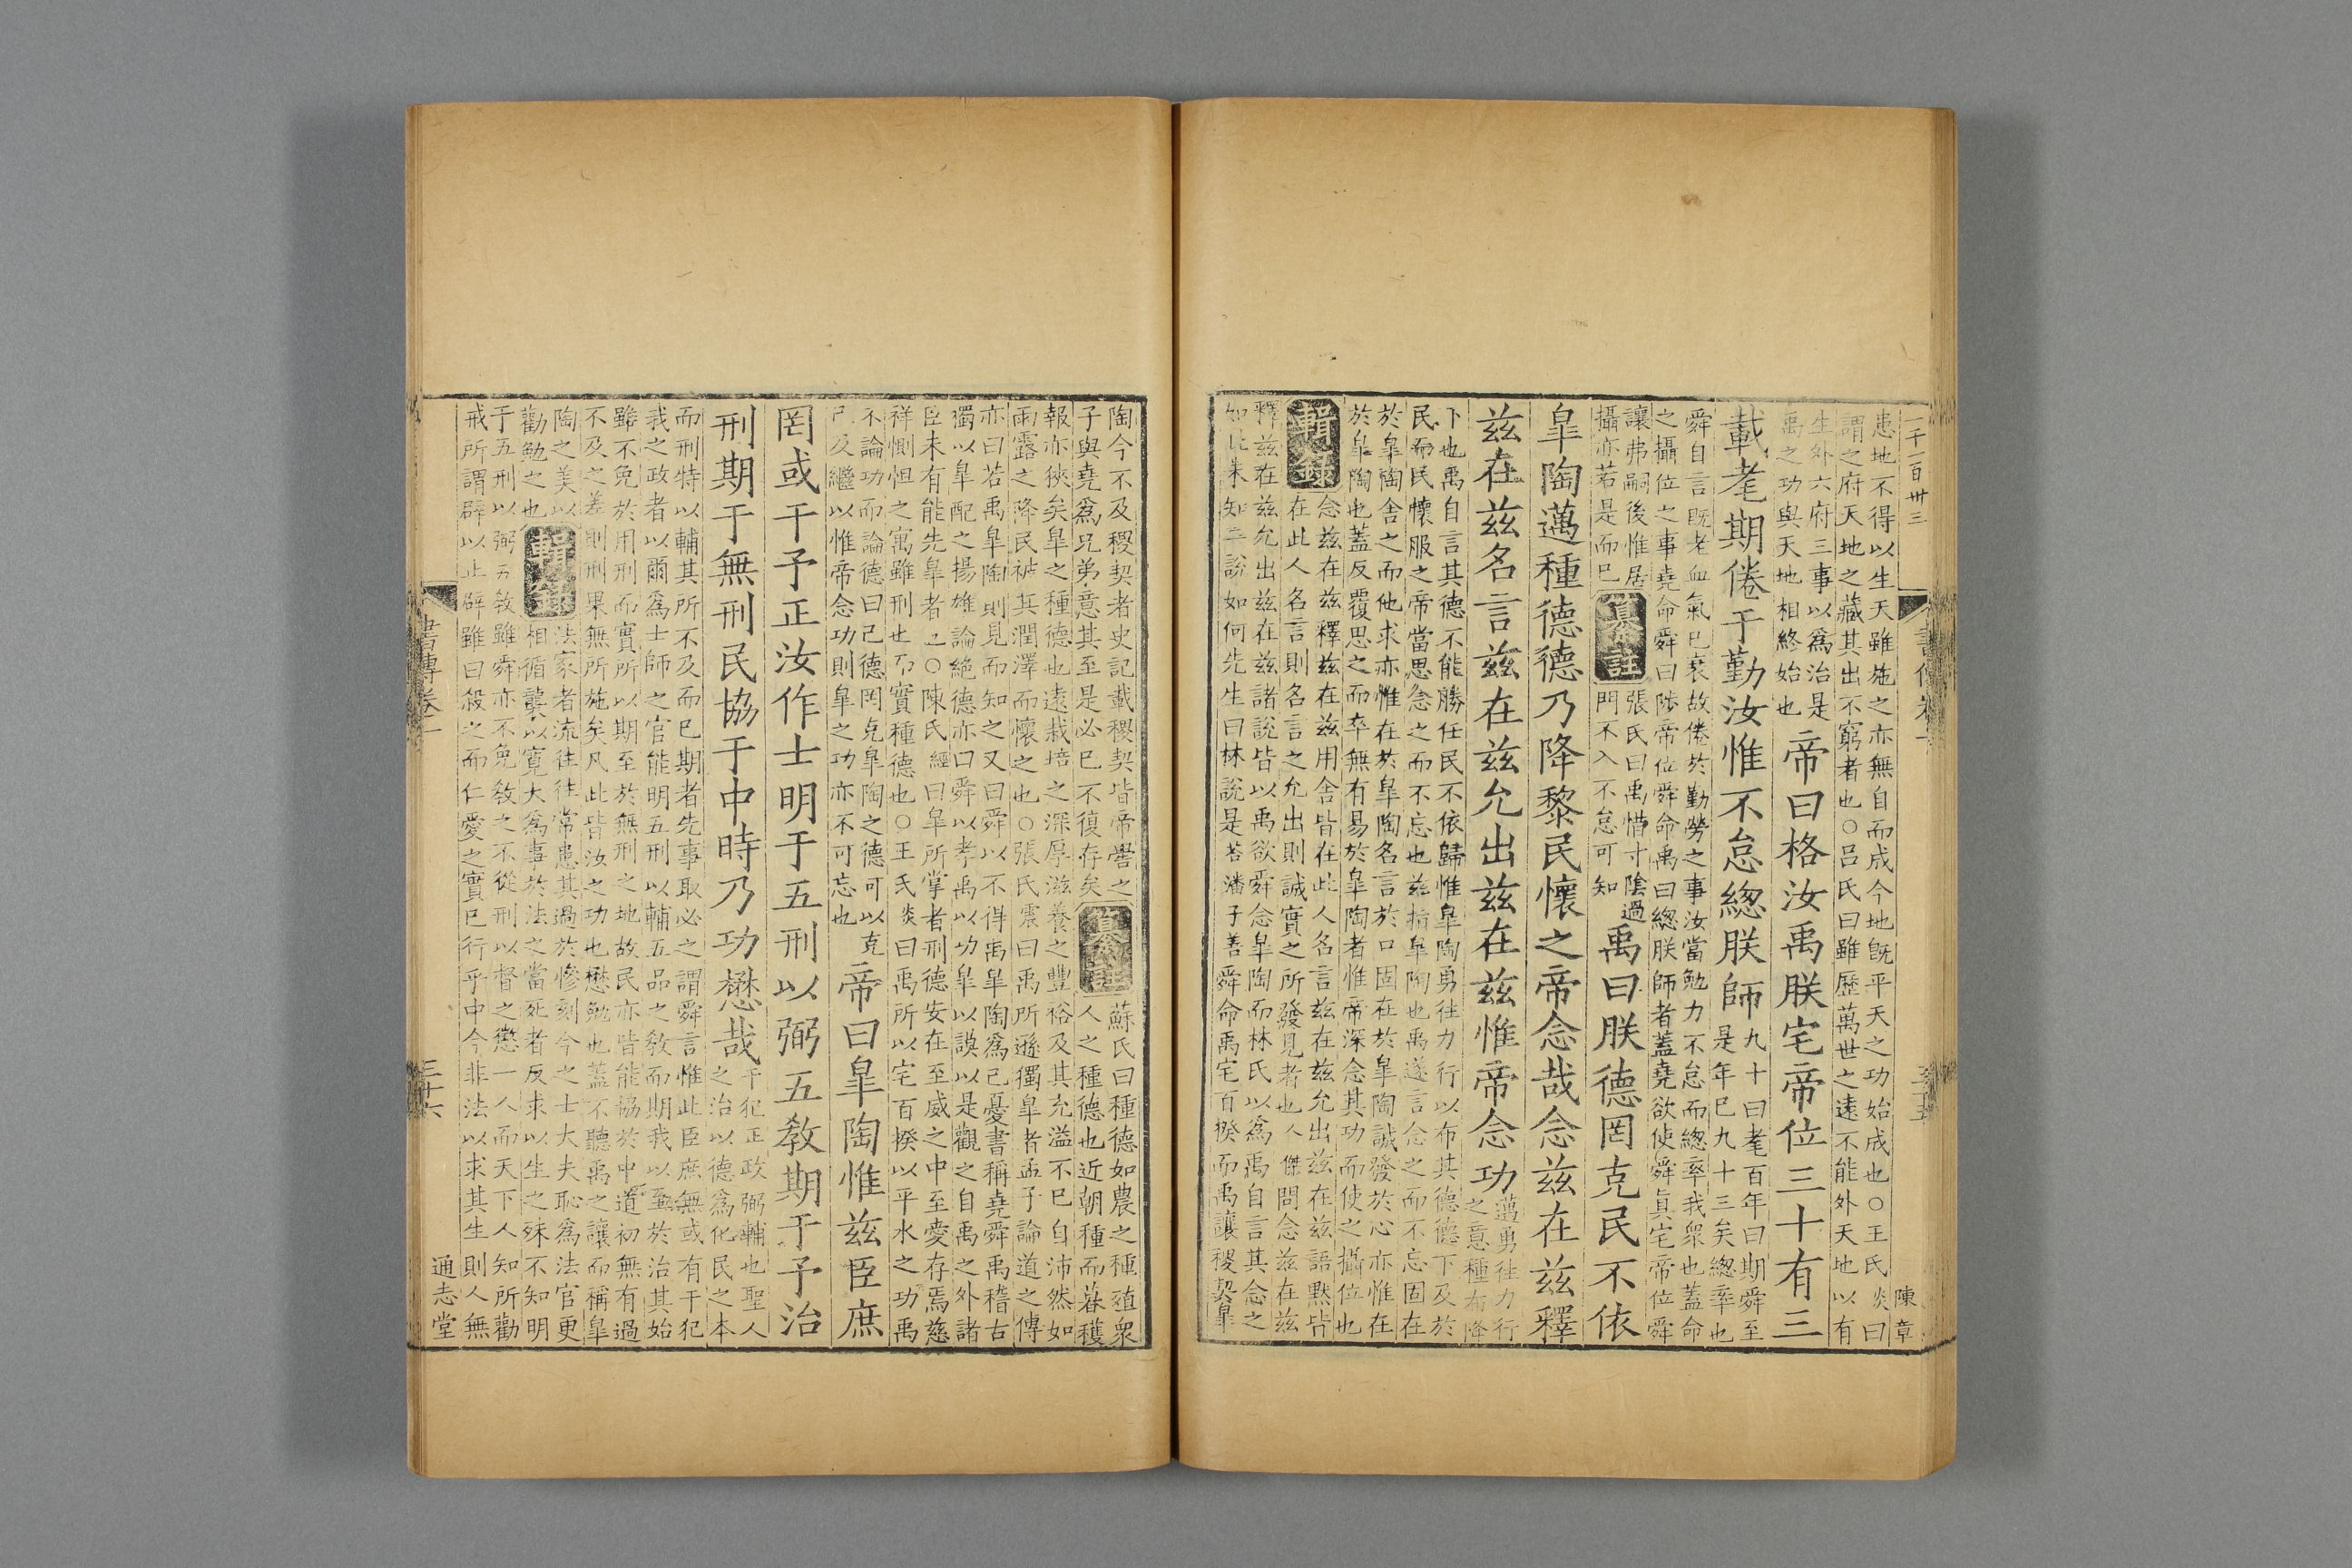 一千一百卅三
陳章
患地不得以生天雖施之亦無自而成今地旣平天之功始成也○王氏炎曰
謂之府天地之藏其出不窮者也○呂氏曰雖歷萬世之遠不能外天地以有
生外六府三事以爲治是
禹之功與天地相終始也
帝曰格汝禹朕宅帝位三十有三
載耄期倦于勤汝惟不怠緫朕師
九十曰耄百年曰期舜至
是年已九十三矣緫率也
舜自言旣老血氣已衰故倦於勤勞之事汝當勉力不怠而緫率我衆也蓋命
之攝位之事堯命舜曰陟帝位舜命禹曰緫朕師者蓋堯欲使舜眞宅帝位舜
讓弗嗣後惟居
攝亦若是而已
纂註
張氏曰禹惜寸陰過
門不入不怠可知
禹曰朕德罔克民不依
皐陶邁種德德乃降黎民懷之帝念哉念兹在兹釋
兹在兹名言兹在兹允出兹在兹惟帝念功
邁勇往力行
之意種布降
下也禹自言其德不能勝任民不依歸惟皐陶勇往力行以布其德德下及於
民而民懷服之帝當思念之而不忘也兹指皐陶也禹遂言念之而不忘固在
於皐陶舍之而他求亦惟在於皐陶名言於口固在於皐陶誠發於心亦惟在
於皐陶也蓋反覆思之而卒無有易於皐陶者惟帝深念其功而使之攝位也
輯錄
念兹在兹釋兹在兹用舍皆在此人名言兹在兹允出兹在兹語默皆
在此人名言則名言之允出則誠實之所發見者也人傑問念兹在兹
釋兹在兹允出兹在兹諸說皆以禹欲舜念皐陶而林氏以爲禹自言其念之
如此未知二說如何先生曰林說是荅潘子善舜命禹宅百揆而禹讓稷契皐
陶今不及稷契者史記載稷契皆帝嚳之
子與堯爲兄弟意其至是必已不復存矣
纂註
蘇氏曰種德如農之種殖衆
人之種德也近朝種而暮穫
報亦狹矣皐之種德也遠栽培之深厚滋養之豐裕及其充溢不已自沛然如
雨露之降民被其潤澤而懷之也○張氏震曰禹所遜獨皐者孟子論道之傳
亦曰若禹皐陶則見而知之又曰舜以不得禹皐陶爲己憂書稱堯舜禹稽古
獨以皐配之揚雄論絶德亦曰舜以孝禹以功皐以謨以是觀之自禹之外諸
臣未有能先皐者也○陳氏經曰皐所掌者刑德安在至威之中至愛存焉慈
祥惻怛之寓雖刑也乃實種德也○王氏炎曰禹所以宅百揆以平水之功禹
不論功而論德曰己德罔克皐陶之德可以克
己及繼以惟帝念功則皐之功亦不可忘也
帝曰皐陶惟兹臣庶
罔或干予正汝作士明于五刑以弼五敎期于予治
刑期于無刑民協于中時乃功懋哉
干犯正政弼輔也聖人
之治以德爲化民之本
而刑特以輔其所不及而已期者先事取必之謂舜言惟此臣庶無或有干犯
我之政者以爾爲士師之官能明五刑以輔五品之敎而期我以至於治其始
雖不免於用刑而實所以期至於無刑之地故民亦皆能協於中道初無有過
不及之差則刑果無所施矣凡此皆汝之功也懋勉也蓋不聽禹之讓而稱皐
陶之美以
勸勉之也
輯錄
法家者流往往常患其過於慘刻今之士大夫恥爲法官更
相循襲以寬大爲事於法之當死者反求以生之殊不知明
于五刑以弼五敎雖舜亦不免敎之不從刑以督之懲一人而天下人知所勸
戒所謂辟以止辟雖曰殺之而仁愛之實已行乎中今非法以求其生則人無
書傳卷一
三十六
通志堂